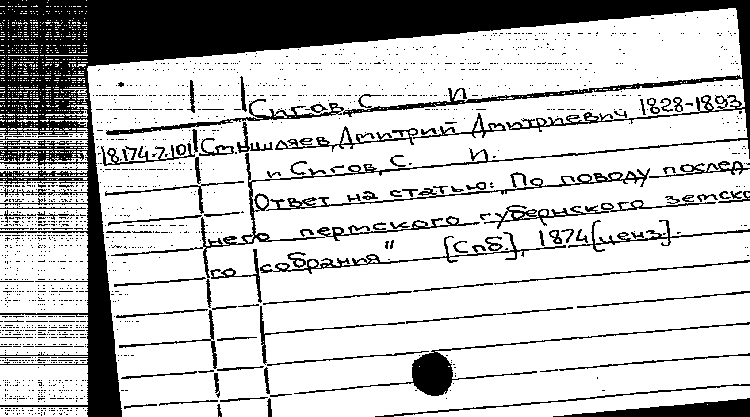 Сигов, С. И.
18.174.7.101 Смышляев, Дмитрий Дмитриевич, 1828-1893
и Сигов, С. И.
Ответ на статью: „По поводу послед-
него пермского губернского земско
го собрания" [Спб.], 1874 [ценз.].